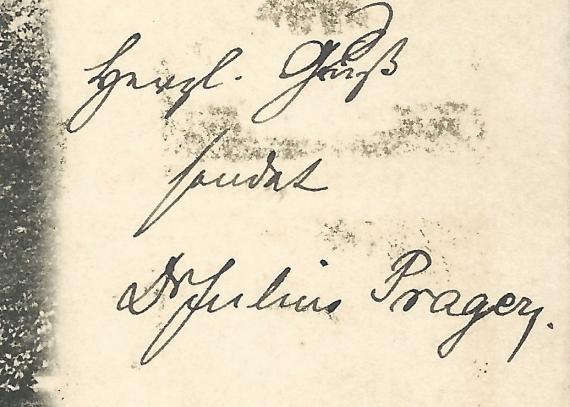 Herzl. Gruß
sendet
Dr Julius Prager.